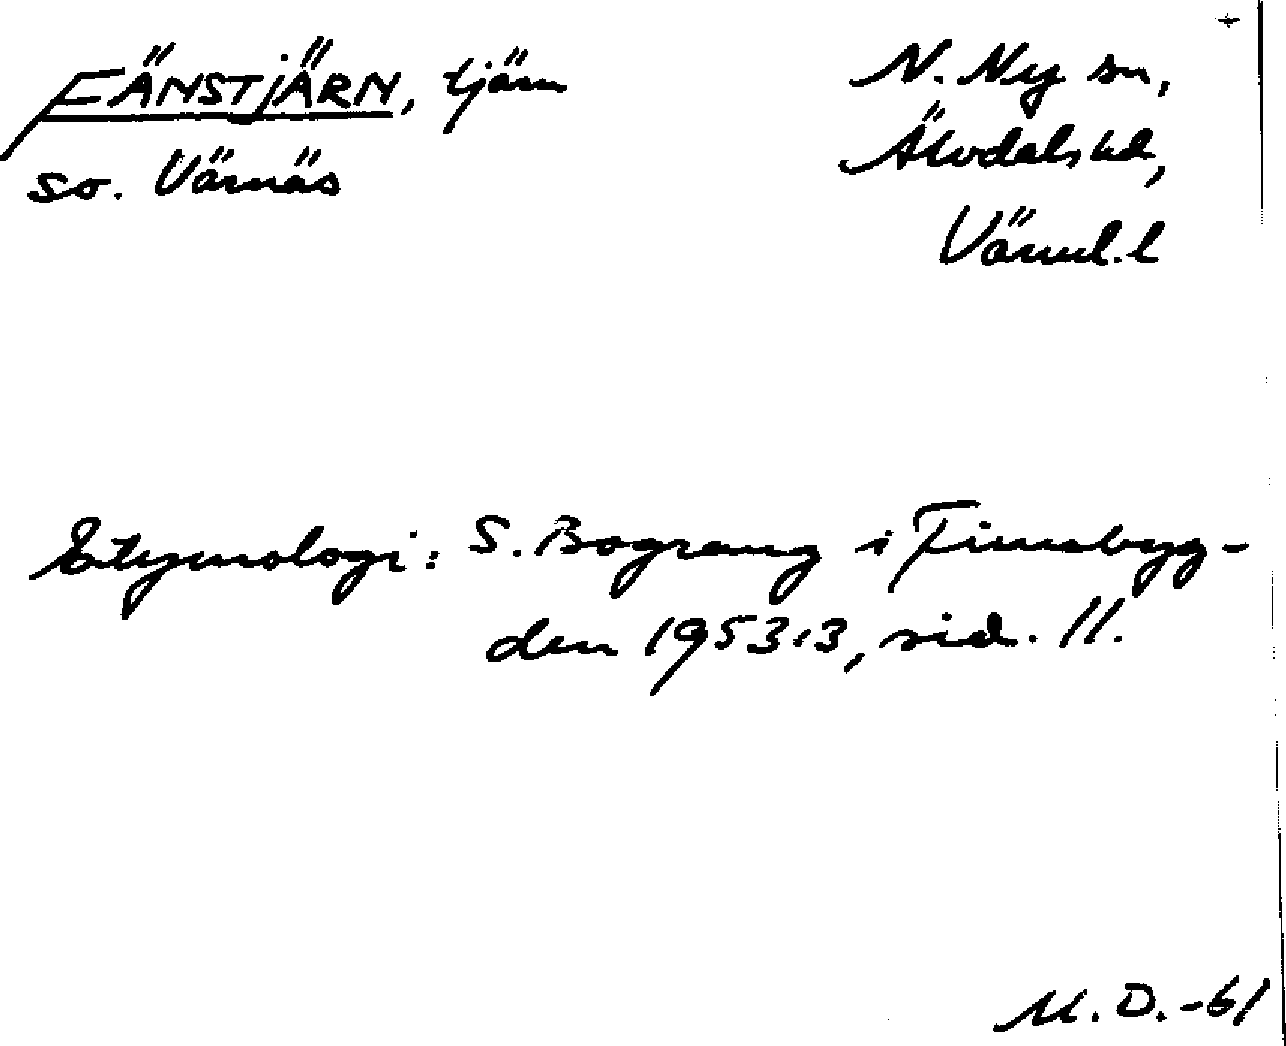 FÄNSTJÄRN, tjärn
so. Värnäs
N. Ny sn,
Älvdals hd,
Värml. l
Etymologi: S. Bograng i Finnebyg-
den 1953:3, sid. 11.
M.D. -61